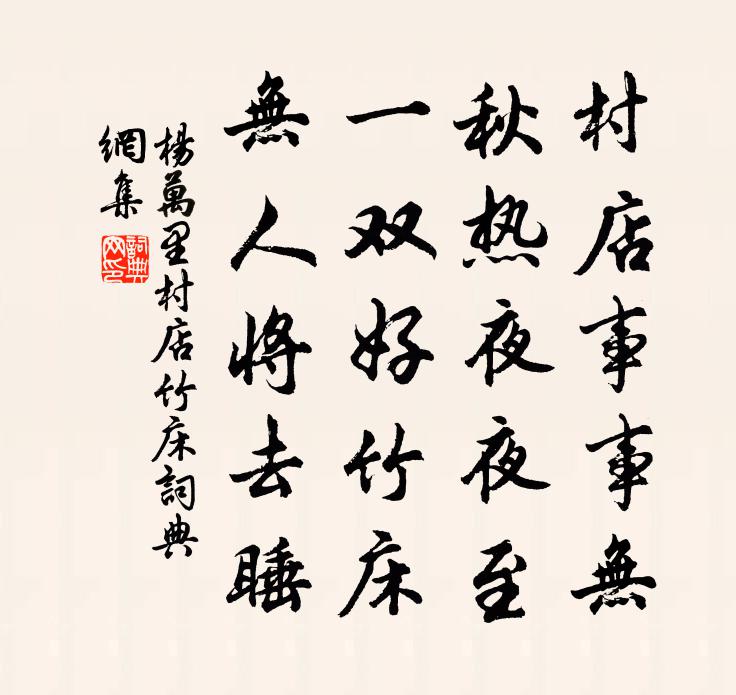 村店事事無
秋热夜夜至
一双好竹床
無人将去睡
楊萬里村店竹床詞典
網集
詞典
网印